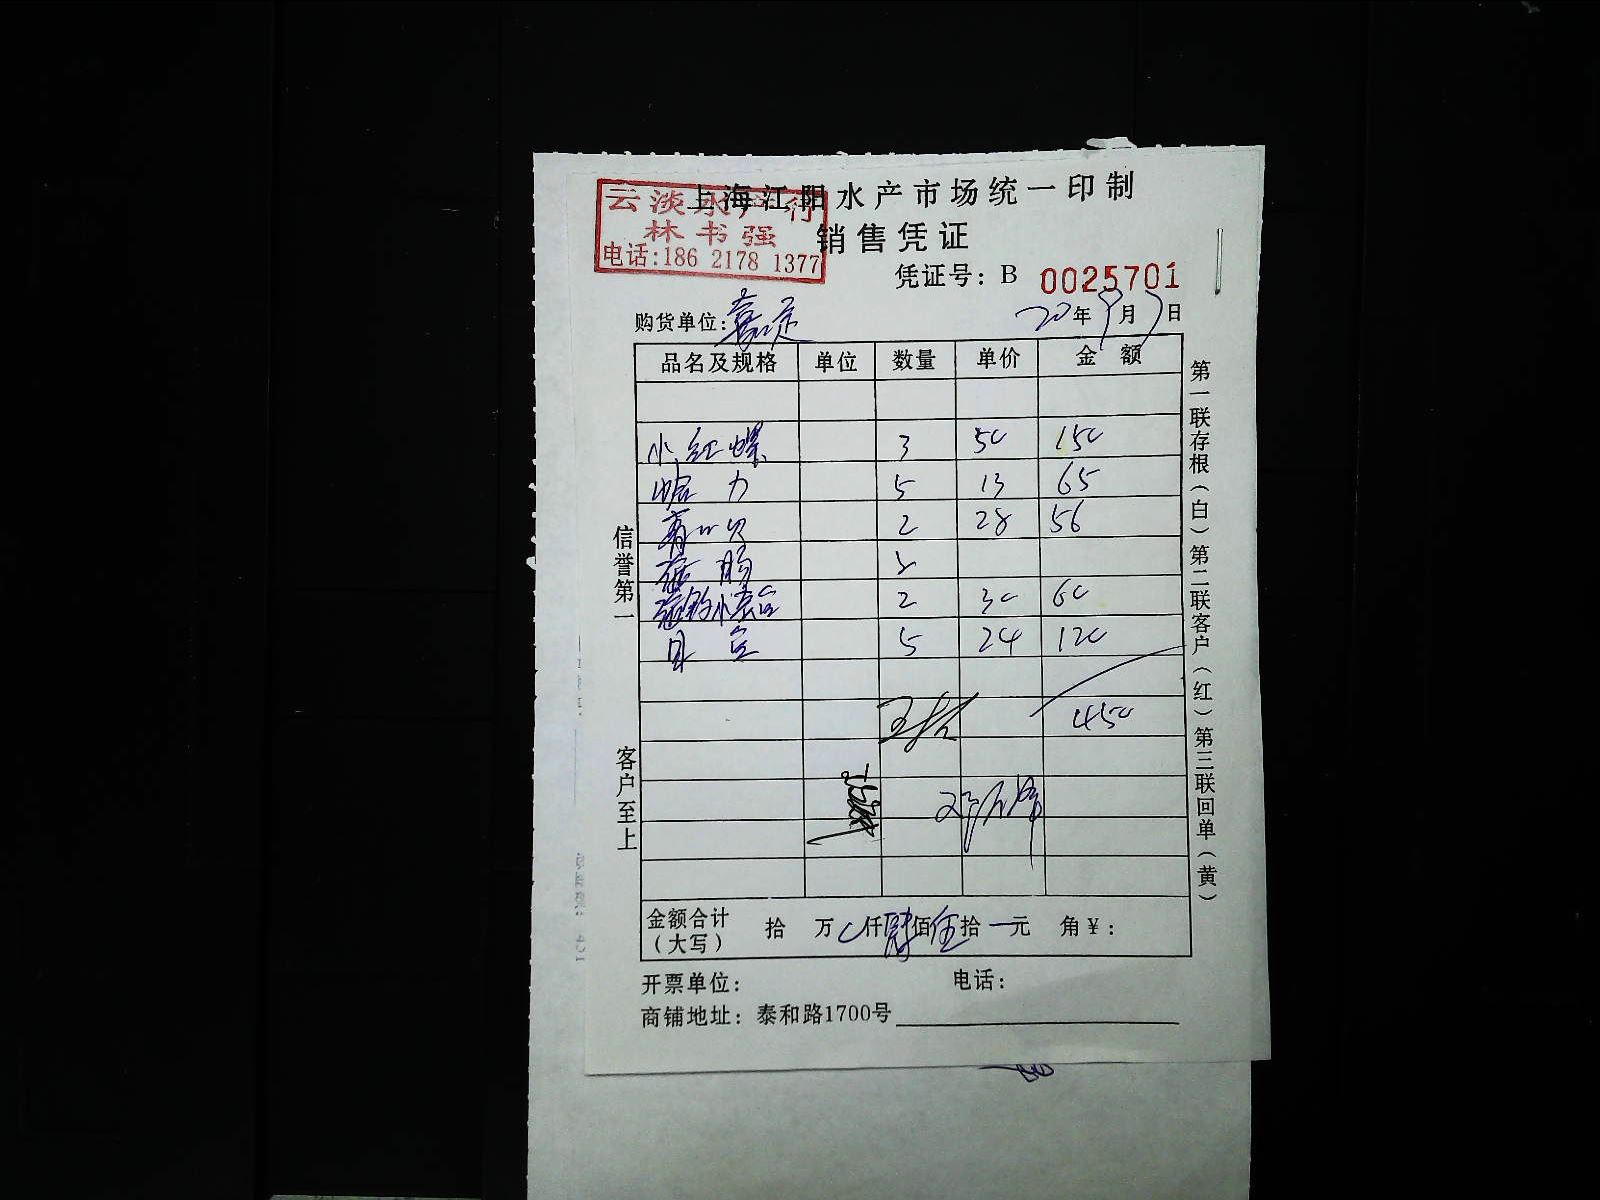 上海江阳水产市场统一印制
云淡水产行
林书强
电话:186 2178 1377
销售凭证
凭证号: B 0025701
购货单位:嘉定 20年9月7日
品名及规格 单位 数量 单价 金额
小红螺 3 50 150
蛤力 5 13 65
青口贝 2 28 56
2
2 30 60
5 24 120
450
金额合计（大写） 拾 万 0仟肆佰伍拾一元 角￥:
开票单位: 电话:
商铺地址: 泰和路1700号
信誉第一
客户至上
第一联存根（白）第二联客户（红）第三联回单（黄）